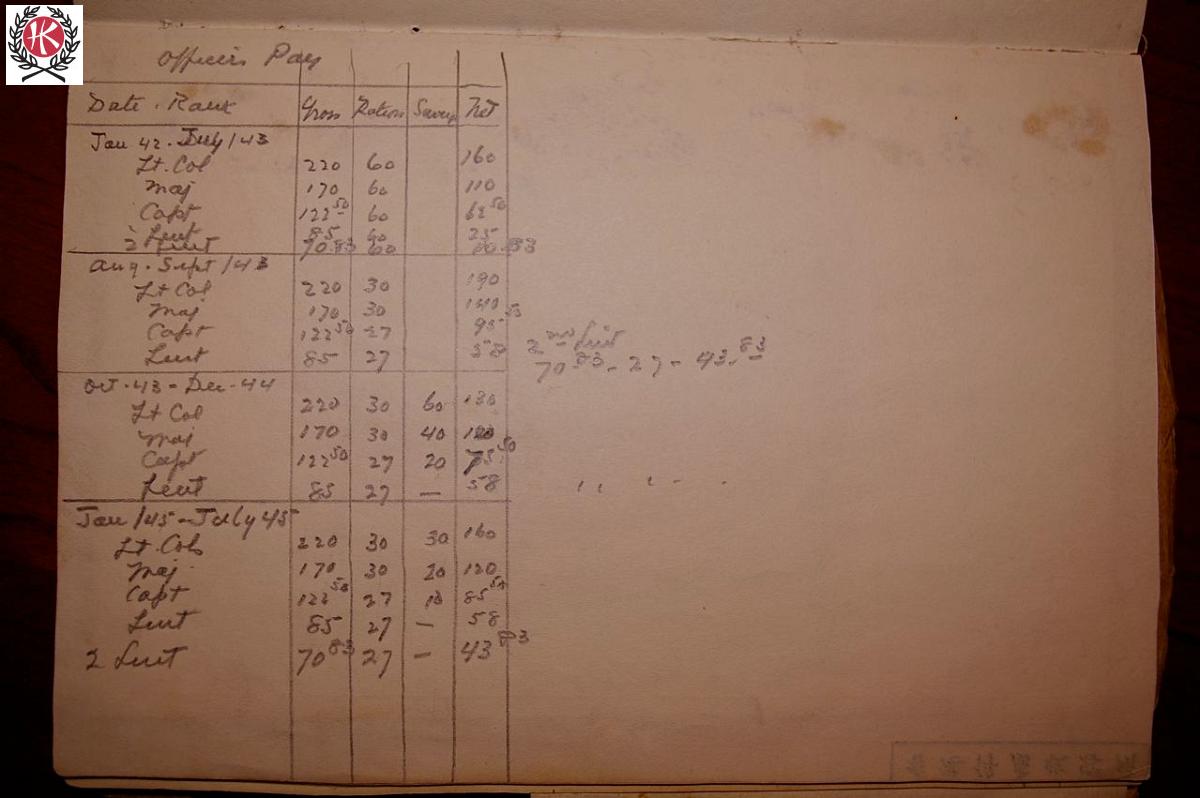 HK
Officers Pay
Date . Rank Gross Rations Savings Net
Jan 42 - July /43
Lt. Col 220 60 160
Maj 170 60 110
Capt 122 50 60 62 50
Lieut 85 60 25
2 Lieut 70.83 60 10.83
Aug - Sept /43
Lt Col 220 30 190
Maj 170 30 140
Capt 122 50 27 95 50
Lieut 85 27 58
2nd Lieut
70 83 - 27 - 43.83
Oct - 43 - Dec - 44
Lt Col 220 30 60 130
Maj 170 30 40 100
Capt 122 50 27 20 75 50
Lieut 85 27 — 58
Jan /45 - July 45
Lt. Cols 220 30 30 160
Maj 170 30 20 120
Capt 122 50 27 10 85 50
Lieut 85 27 — 58
2 Lieut 70 83 27 — 43 83